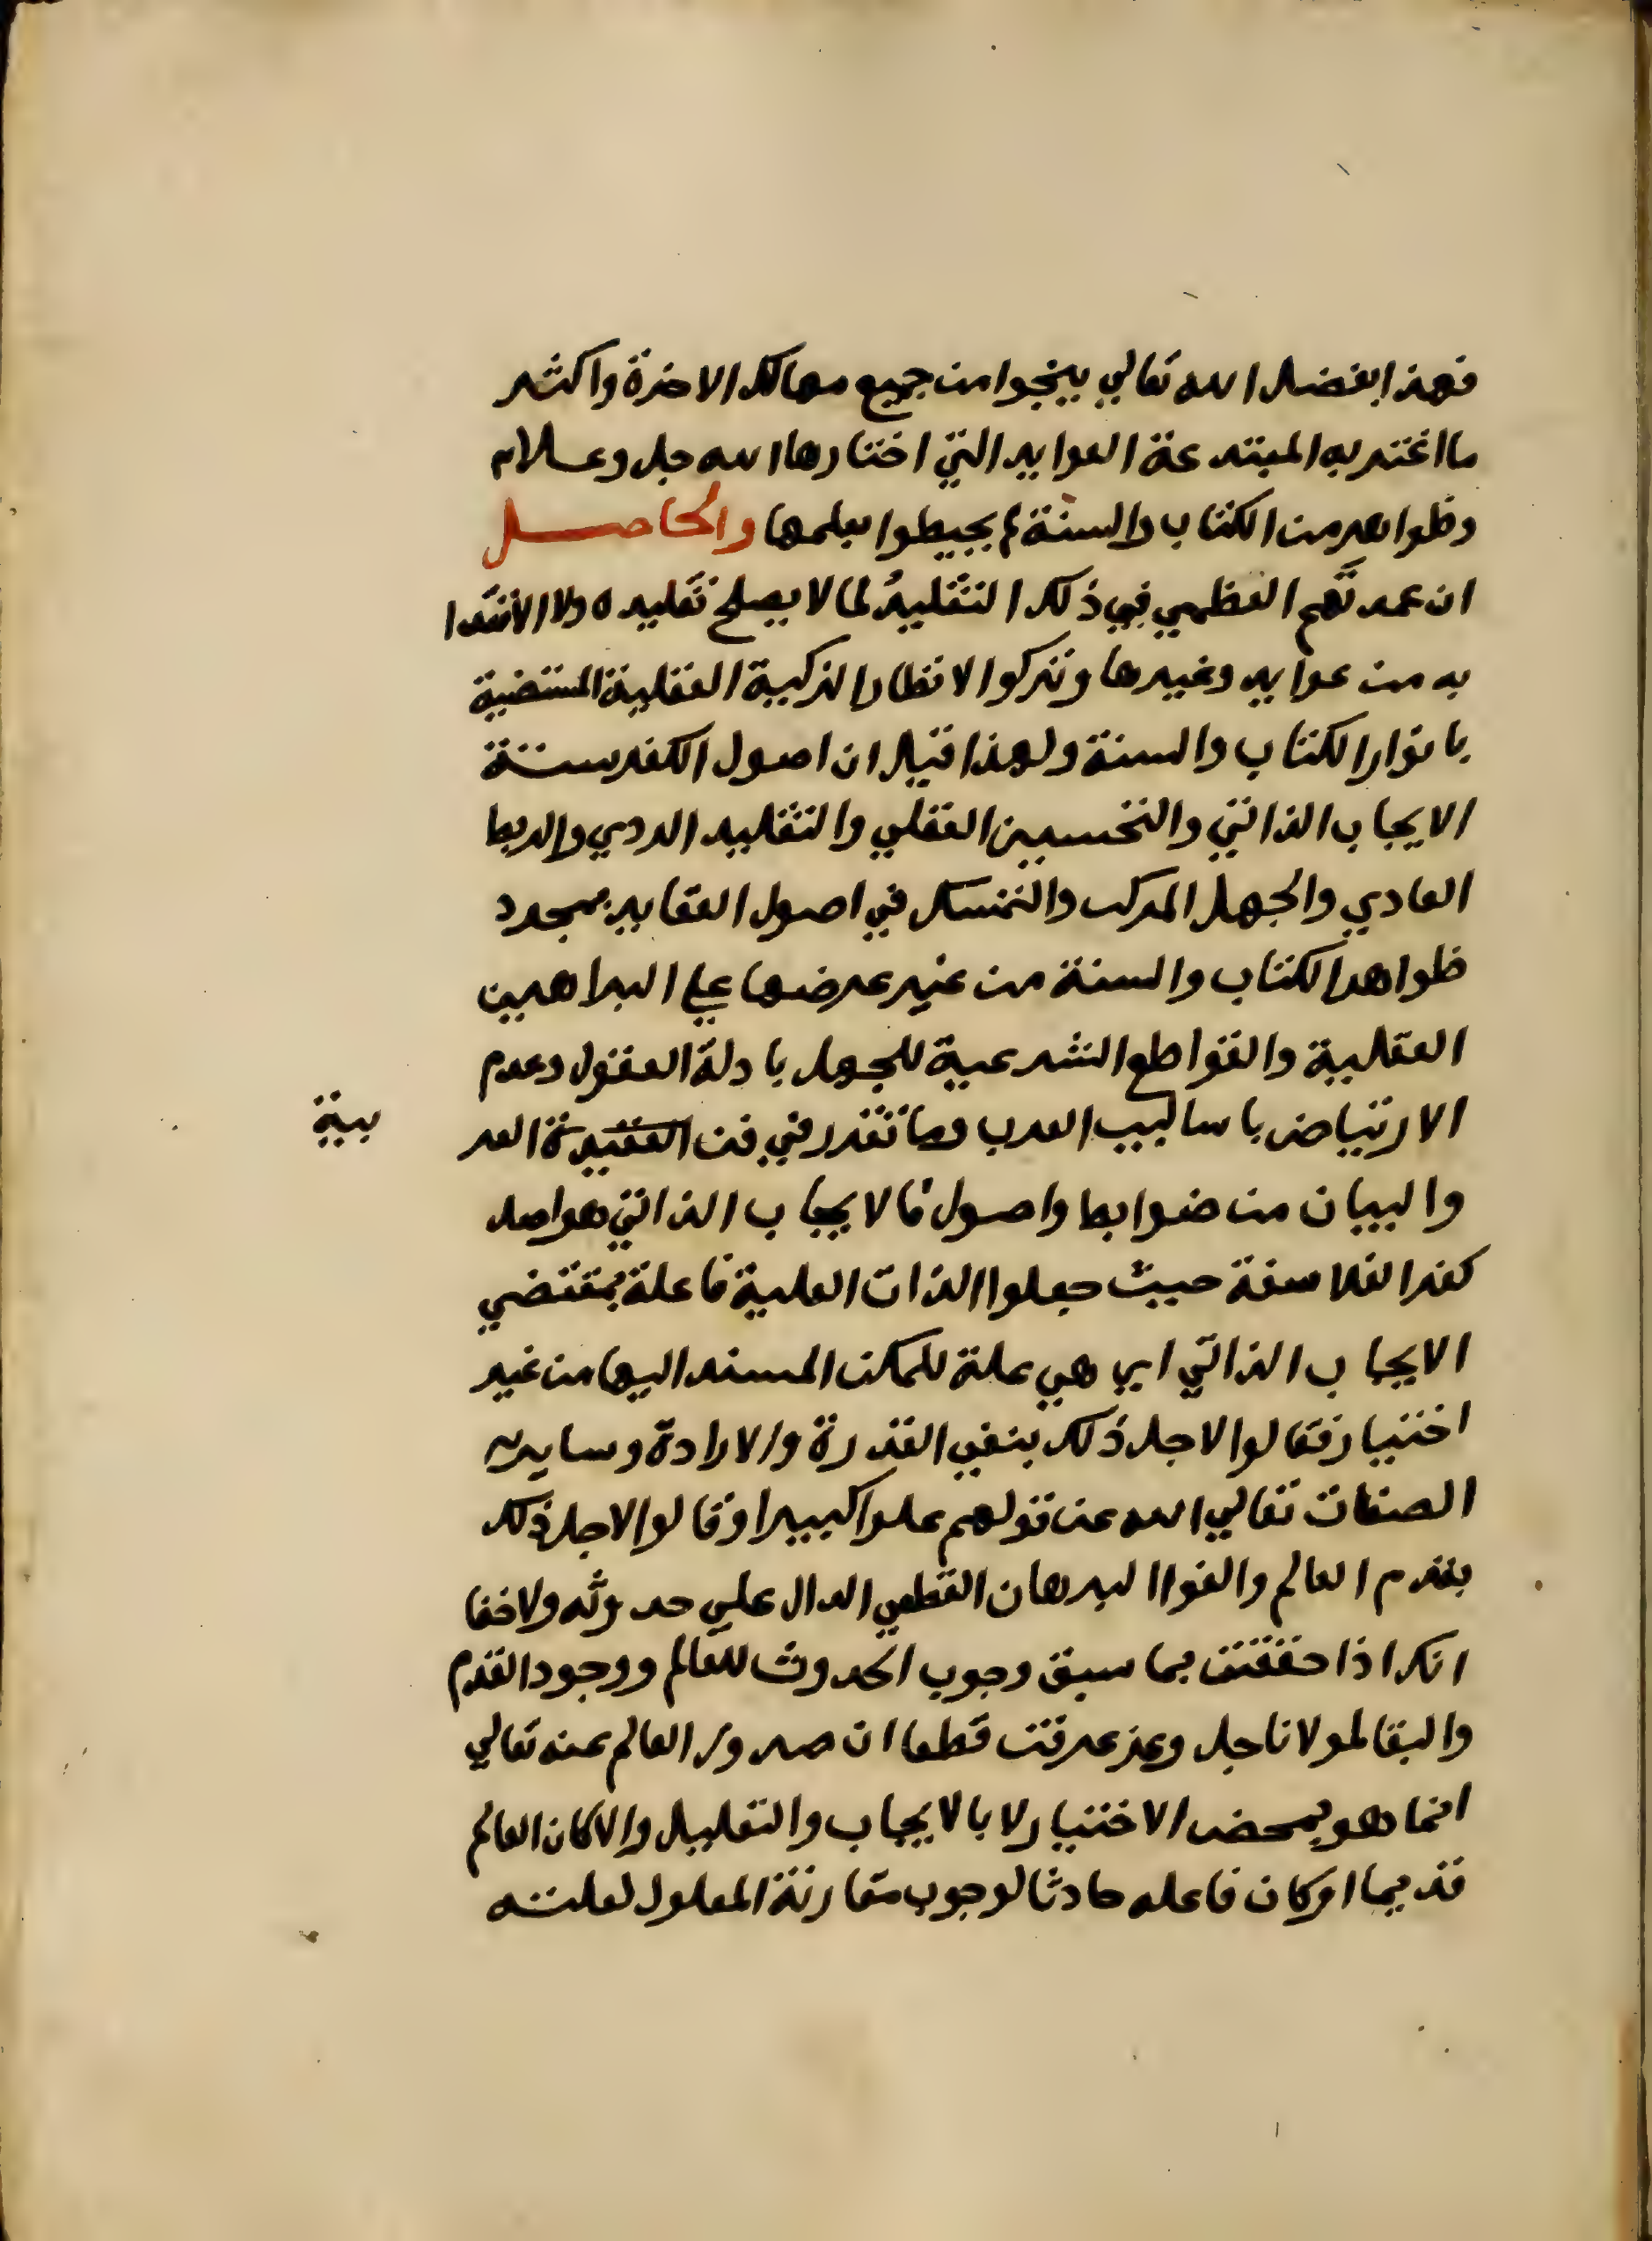 فهذا بفضل الله تعالي ينجوا من جميع مهالك الاخرة واكثر
ما اغتر به المبتدعة العوايد التي اختارها الله جل وعلا م
وظواهر من الكتاب والسنة لم يحيطوا بعلمها والحاصل
ان عمدتهم العظمي في ذلك التقليد لما لا يصلح تقليده ولا الاقتدا
به من عوايد وغيرها وتركوا الانظار الزكية العقلية المستضية
بانوار الكتاب والسنة ولهذا قيل ان اصول الكفر ستة
الايجاب الذاتي والتحسين العقلي والتقليد الردي والربط
العادي والجهل المركب والتمسك في اصول العقايد بمجرد
ظواهر الكتاب والسنة من غير عرضها علي البراهين
العقلية والقواطع الشرعية للجهل بادلة العقول وعدم
الارتياض باساليب العرب وما تقرر في فن العقيدة العر
بية
والبيان من ضوابط واصول فالايجاب الذاتي هو اصل
كفر الفلاسفة حيث جعلوا الذات العلية فاعلة بمقتضي
الايجاب الذاتي اي هي علة للممكن المسند اليها من غير
اختيار فقالوا لاجل ذلك بنفي القدرة والارادة وساير
الصفات تعالي الله عن قولهم علوا كبيرا وقالوا لاجل ذلك
بقدم العالم والغوا البرهان القطعي الدال علي حدوثه ولا خفا
انك اذا حققت بما سبق وجوب الحدوث للعالم ووجود القدم
والبقا لمولانا جل وعز عرفت قطعا ان صدور العالم عنه تعالي
انما هو بمحض الاختيار لا بالايجاب والتعليل والا كان العالم
قديما او كان فاعله حادثا لوجوب مقارنة المعلول لعلته